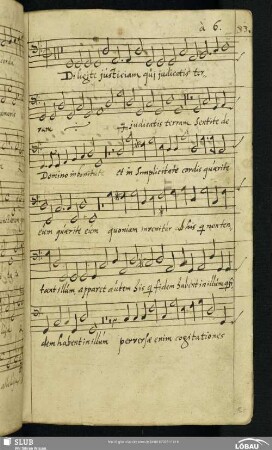 à 6.
Diligite justiciam qui judicatis ter,
ram qui judicatis terram Sentite de
Domino in bonitate et in Simplicitate cordis quærite
eum quærite eum quoniam invenitur ab his qui non ten,
tant illum apparet autem his qui fidem habent in illum qui
dem habent in illum perversæ enim cogitationes
SLUB
Wir führen Wissen.
LÖBAU